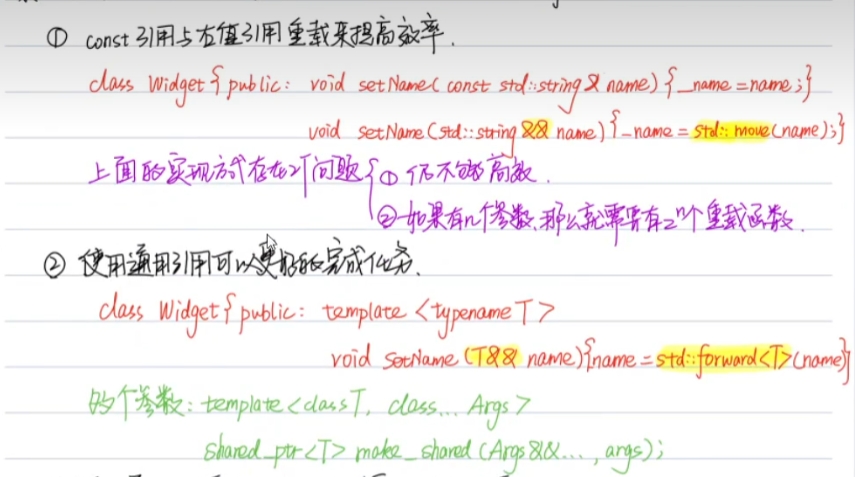 ① const引用与右值引用重载来提高效率.
class Widget{public: void setName(const std::string& name){_name=name;}
void setName(std::string&& name){_name=std::move(name);}
上面的实现方式存在2个问题{① 仍不够高效.
②如果有n个参数,那么就需要有2^n个重载函数.
② 使用通用引用可以更好的完成任务.
class Widget{public: template <typename T>
void setName(T&& name){name=std::forward<T>(name)}
多个参数: template<class T, class... Args>
shared_ptr<T> make_shared(Args&&..., args);